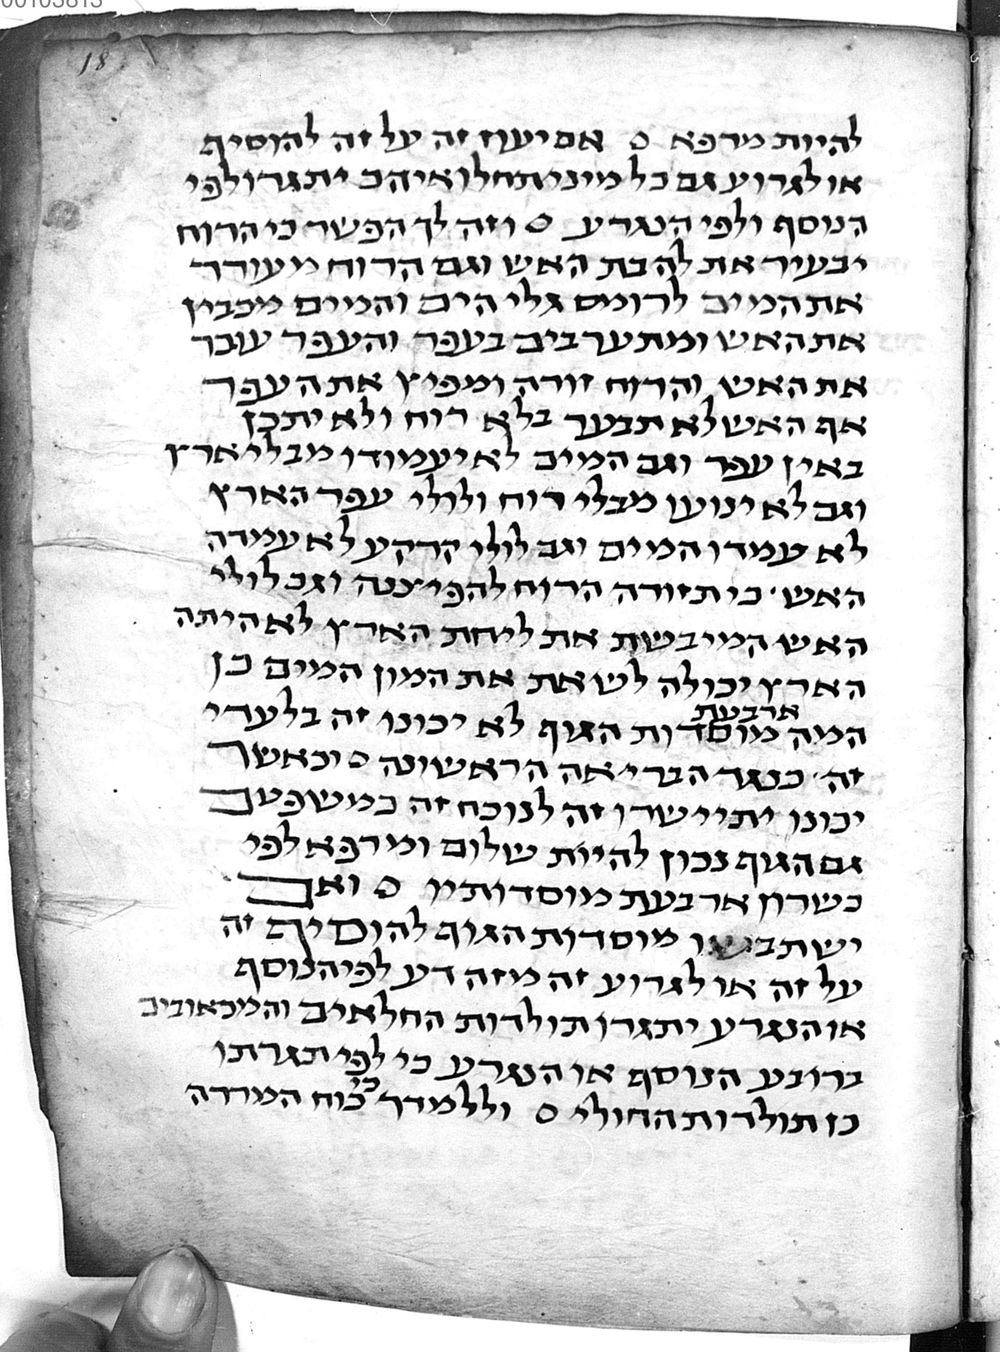 00103813
18
להיות מרפא ○ אם יעוז זה על זה להוסיף
או לגרוע גם כל מיני תחלואיהם יתגרו לפי
הנוסף ולפי הנגרע ○ וזה לך הפשר כי הרוח
יבעיר את להבת האש וגם הרוח מעורר
את המים לרומם גלי הים והמים מכבין
את האש ומתערבים בעפר והעפר עוכר
את האש והרוח זורה ומפיץ את העפר
אף האש לא תבער בלא רוח ולא יתכן
באין עפר וגם המים לא יעמודו מבלי ארץ
וגם לא ינועו מבלי רוח ולולי עפר הארץ
לא עמדו המים וגם לולי קרקע לא עמדה
האש · כי תזורה הרוח להפיצנה וגם לולי
האש המייבשת את ליחת הארץ לא היתה
הארץ יכולה לשאת את המון המים כן
ארבעת
המה מוסדות הגוף לא יכונו זה בלעדי
זה · כנגד הבריאה הראשונה ○ וכאשר
יכונו יתיישרו זה לנוכח זה כמשפטם
גם הגוף נכון להיות שלום ומרפא לפי
כשרון ארבעת מוסדותיו ○ ואם
ישתבשו מוסדות הגוף להוסיף זה
על זה או לגרוע זה מזה דע לפי הנוסף
או הנגרע יתגרו תולדות החלאים והמכאובים
ברובע הנוסף או הנגרע כי לפי תגרתו
כי
כן תולדות החולי ○ וללמדך כוח המרדה